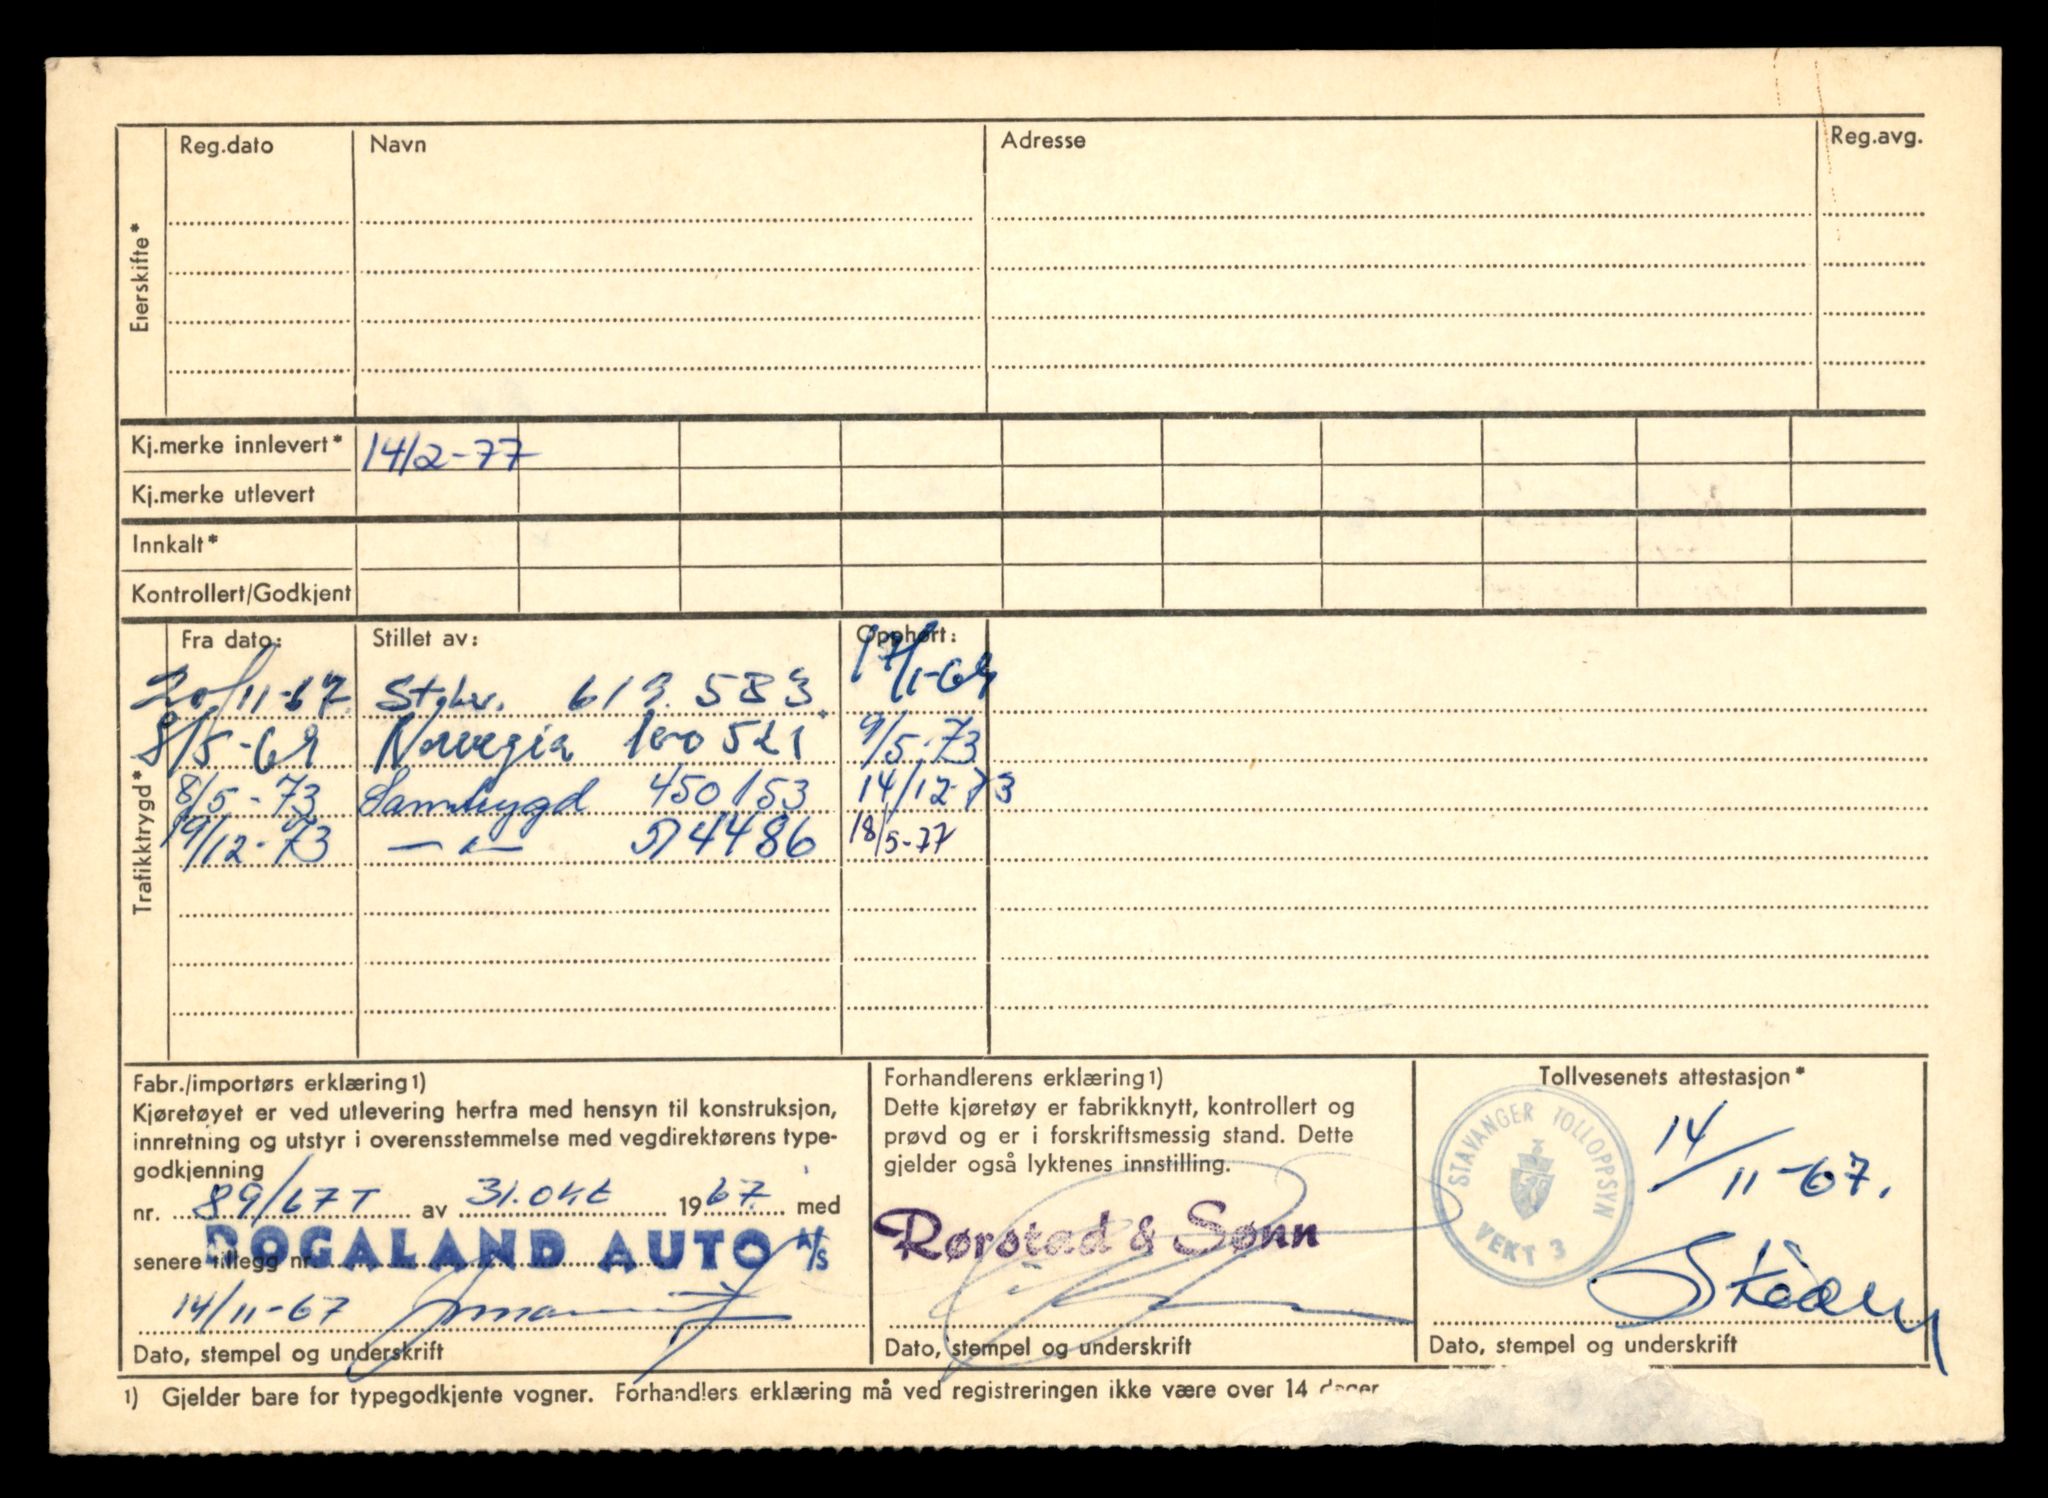 Reg.dato Navn Adresse Reg.avg.
Eierskifte*
Kj.merke innlevert* 14/2-77
Kj.merke utlevert
Innkalt*
Kontrollert/Godkjent
Trafikktrygd*
Fra dato: Stillet av: Opphørt:
20/11-67 619.583 17/1-69
8/5-69 Norvegia 100521 9/5-73
8/5-73 Samtrygd 450153 14/12-73
19/12-73 — " — 574486 18/5-77
Fabr./importørs erklæring1)
Kjøretøyet er ved utlevering herfra med hensyn til konstruksjon,
innretning og utstyr i overensstemmelse med vegdirektørens type-
godkjenning
nr. 89/67T av 31.okt 1967. med
senere tillegg nr.
ROGALAND AUTO A/S
14/11-67
Dato, stempel og underskrift
Forhandlerens erklæring1)
Dette kjøretøy er fabrikknytt, kontrollert og
prøvd og er i forskriftsmessig stand. Dette
gjelder også lyktenes innstilling.
Rørstad & Sønn
Dato, stempel og underskrift
Tollvesenets attestasjon*
STAVANGER TOLLOPPSYN
VEKT 3
14/11-67.
Dato, stempel og underskrift
1) Gjelder bare for typegodkjente vogner. Forhandlers erklæring må ved registreringen ikke være over 14 dager